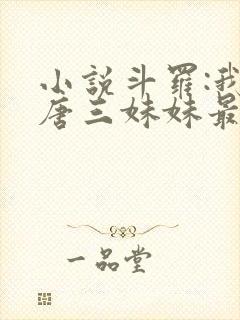 小說斗羅:我
唐三妹妹最
一品堂